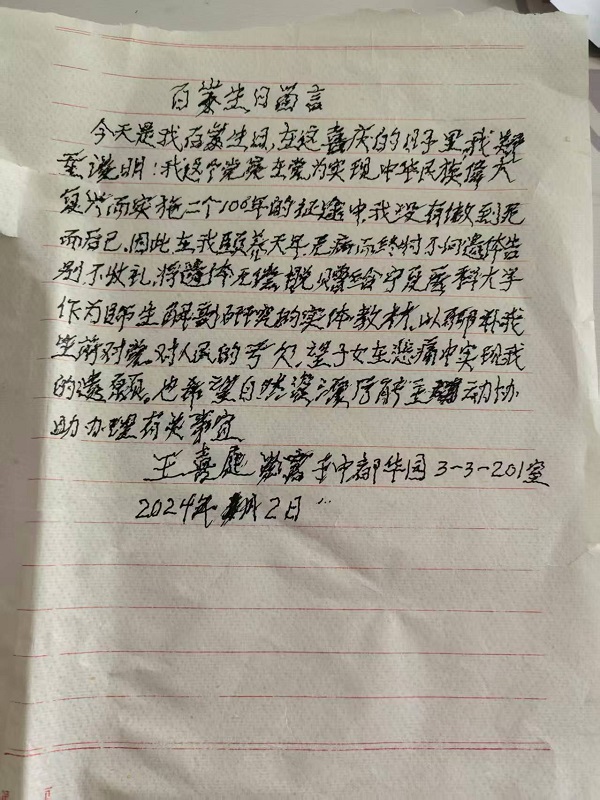 百岁生日留言
今天是我百岁生日,在这喜庆的日子里,我郑
重说明:我这个党员在党为实现中华民族偉大
复兴而实施二个100年的征途中我没有做到死
而后已,因此在我颐养天年,无病而终时不向遗体告
别不收礼,将遗体无偿捐赠给宁夏医科大学
作为师生解剖研究的实体教材,以聊补我
生前对党、对人民的亏欠,望子女在悲痛中实现我
的遗愿。也希望自然资源厅能主动协
助办理有关事宜
王喜庭 中都华园3-3-201室
2024年 月2日